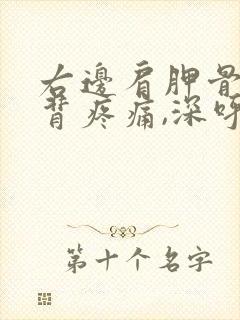 右邊肩胛骨
背疼痛,深呼
第十个名字